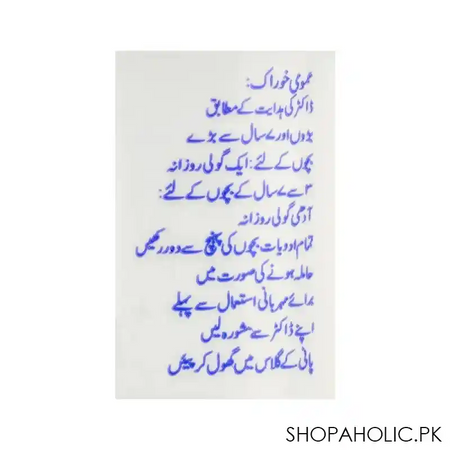 عمومی خوراک:
ڈاکٹر کی ہدایت کے مطابق
بڑوں اور ۷ سال سے بڑے
بچوں کے لئے: ایک گولی روزانہ
۳ سے ۷ سال کے بچوں کے لئے:
آدھی گولی روزانہ
تمام ادویات بچوں کی پہنچ سے دور رکھیں
حاملہ ہونے کی صورت میں
برائے مہربانی استعمال سے پہلے
اپنے ڈاکٹر سے مشورہ لیں
پانی کے گلاس میں گھول کر پیئں
SHOPAHOLIC.PK